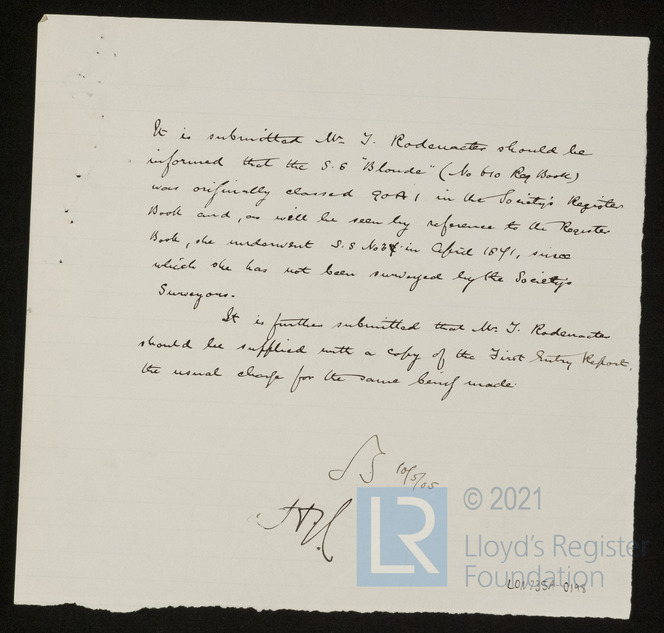 It is submitted Mr J. Rodenacker should be
informed that the S.S "Blonde" (No 610 Reg Book)
was originally classed 90A1 in the Society's Register
Book and, as will be seen by reference to the Register
Book, she underwent S.S No in April 1891, since
which she has not been surveyed by the Society's
Surveyors.
It is further submitted that Mr J. Rodenacker
should be supplied with a copy of the First Entry Report,
the usual charge for the same being made.
10/5/05
LR
© 2021
Lloyd's Register
Foundation
LON735A-0198